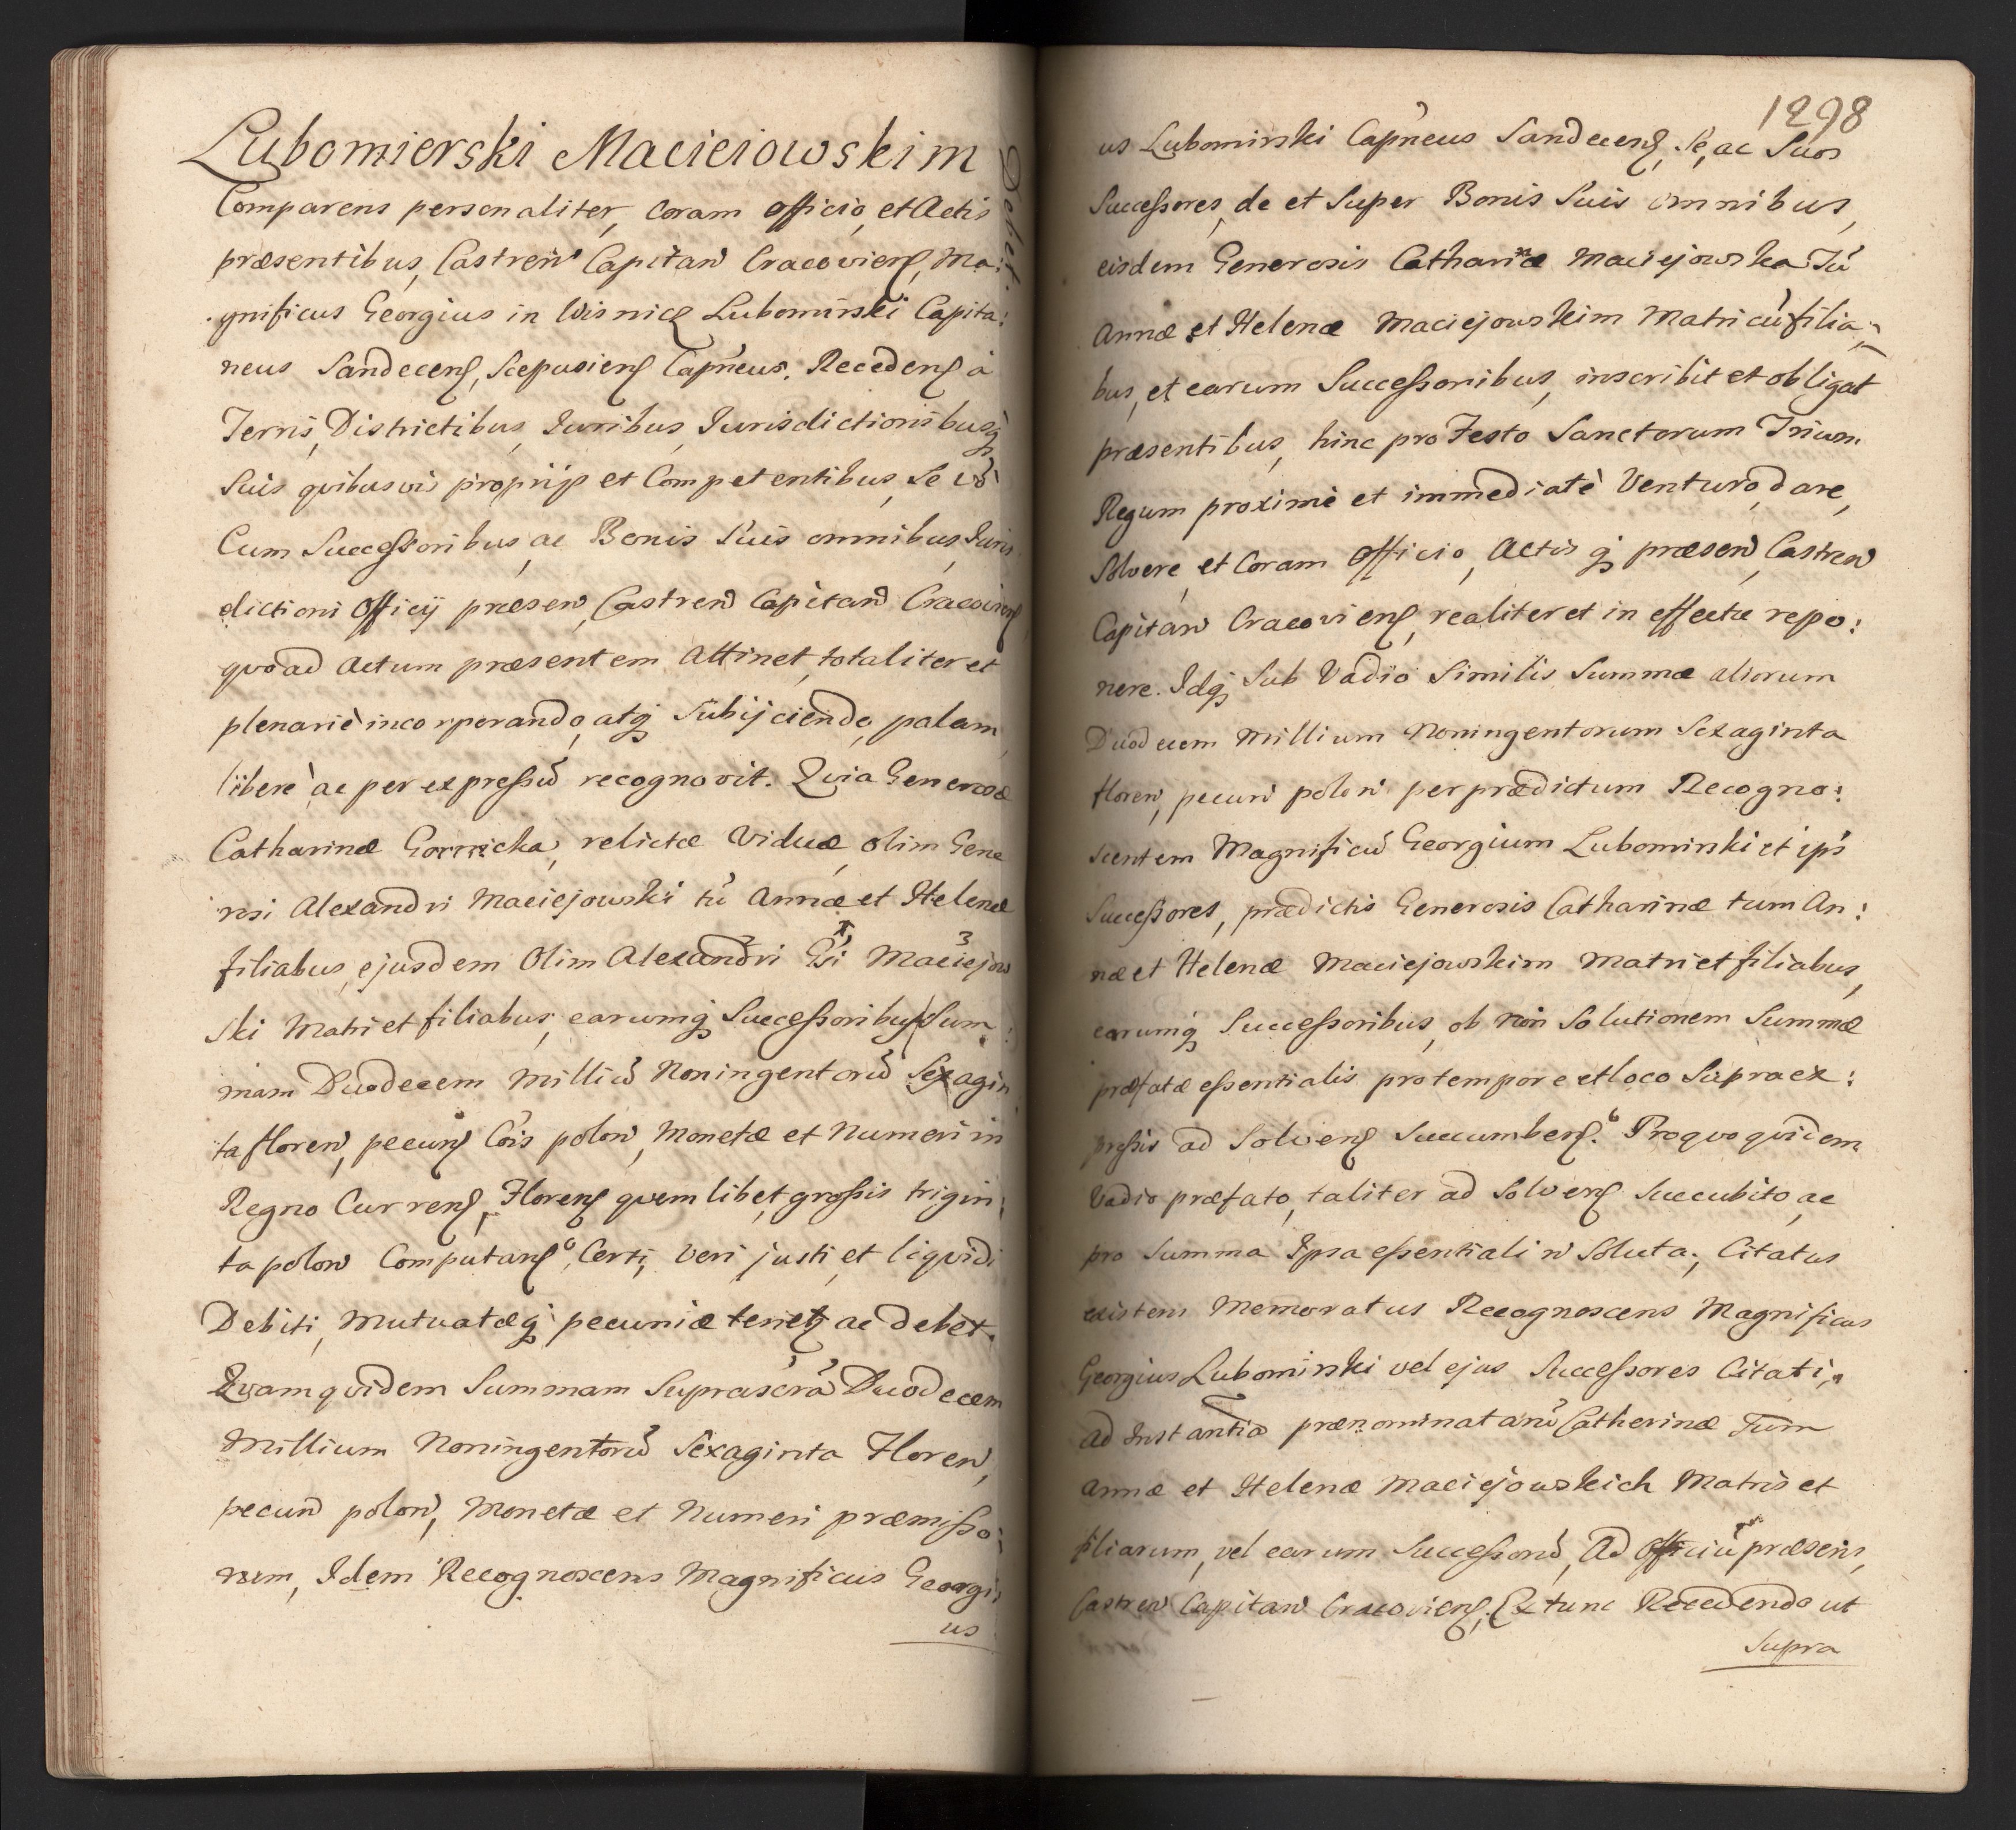 Lubomierski Macieiowskim
Debet.
Comparens personaliter, coram officio, et Actis
præsentibus, Castren̄ Capitan̄ Cracoviens̨, Ma:
gnificus Georgius in Wisnicz Lubomirski Capita:
neus Sandecens̨, Scepusiens̨ Capn̄eus. Recedens̨ à
Terris, Districtibus, Iuribus, Iurisdictionibusq̨
Suis quibusvis proprijs et Competentibus, Se v̄o
Cum Successoribus, ac Bonis Suis omnibus, Juris
dictioni Officij præsen̄, Castren̄ Capitan̄ Cracoviens̨
quoad Actum præsentem Attinet, totaliter et
plenariè incorporando, atq̨ Subijciendo, palam
liberè ac per expressū recognovit. Quia Generosæ
Catharinæ Gornicka, relictæ Viduæ, olim Gene
rosi Alexandri Maciejowski tū Annæ et Helenæ
filiabus, ejusdem Olim Alexandri Gsi Maciejow
ski Matri et filiabus, earumq̨ Successoribus Sum:
mam Duodecem Milliū Noningentorū Sexagin
ta floren̄, pecun̄ Cōis polon̄, Monetæ et Numeri in
Regno Currens̨, Florens̨ quemlibet, grossis trigin:
ta polon̄ Computans̨, Certi, Veri justi, et liquidi
Debiti, Mutuatæq̨ pecuniæ tenetz ac debet.
Quamquidem Summam Suprascrā Duodecem
Millium Noningentorū Sexaginta Floren̄,
pecun̄ polon̄, Monetæ et Numeri præmisso:
rum, Idem Recognoscens Magnificus Georgi,
us
1298
us Lubomirski Capn̄eus Sandecens̨, Se, ac Suos
Successores, de et Super Bonis Suis omnibus,
eisdem Generosis Catharinæ Maciejowska Tū
Annæ et Helenæ Maciejowskim Matri cū filia,,
bus, et earum Successoribus, inscribit et obligat
præsentibus, hinc pro Festo Sanctorum Trium
Regum proximè et immediatè Venturo, dare,
Solvere, et Coram Officio, Actis q̨ præsen̄, Castren̄
Capitan̄ Cracoviens̨, realiter et in effectu repo:
nere. Idq̨ Sub Vadio Similis Summæ aliorum
Duodecem Millium Noningentorum Sexaginta
floren̄, pecun̄ polon̄ per prædictum Recogno:
scentem Magnificū Georgium Lubomirski et ips̄
Successores, prædictis Generosis Catharinæ tum An:
næ et Helenæ Maciejowskim Matri et filiabus,
earumq̨ Successoribus, ob non Solutionem Summæ
præfatæ essentialis pro tempore et loco Supra ex:
pressis ad Solvens̨ Succumbens̨. Pro quo quidem
Vadio præfato, taliter ad Solvens̨ Succubito, ac
pro Summa Ipsa essentiali n̄ Soluta, Citatus
existens Memoratus Recognoscens Magnificus
Georgius Lubomirski vel ejus Successores Citati,,
ad Instantiā prænominatarū Catherinæ Tum
Annæ et Helenæ Maciejowskich Matris et
filiarum, vel earum Successorū, Ad Officiū præsens,
Castren̄ Capitan̄ Cracoviens̨, Ex tunc Recedendo ut
Supra